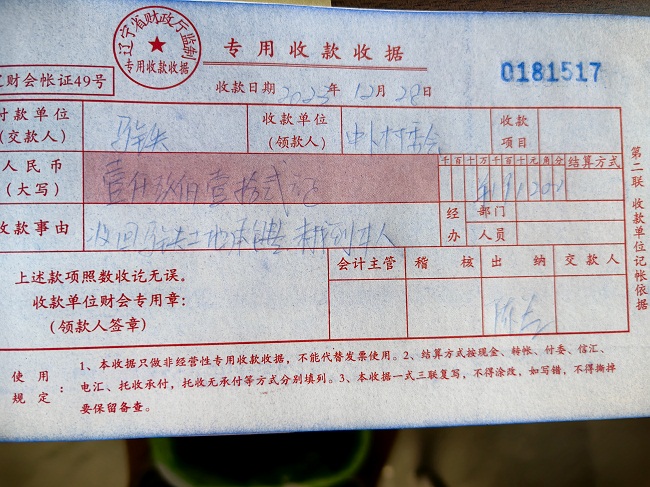 辽宁省财政厅监制
专用收款收据
专用收款收据
0181517
财会帐证49号
收款日期 2023年12月28日
付款单位
(交款人)
收款单位
(领款人)
村委会
收款
项目
人民币
(大写)
壹仟玖佰壹拾贰元
千百十万千百十元角分
结算方式
收款事由
收回 土地承包 本人
经办
部门
人员
上述款项照数收讫无误。
收款单位财会专用章:
(领款人签章)
会计主管
稽核
出纳
交款人
陈
第二联 收款单位记帐依据
使用规定:
1、本收据只做非经营性专用收款收据,不能代替发票使用。2、结算方式按现金、转帐、付委、信汇、
电汇、托收承付,托收无承付等方式分别填列。3、本收据一式三联复写,不得涂改,如写错,不得撕掉
要保留备查。